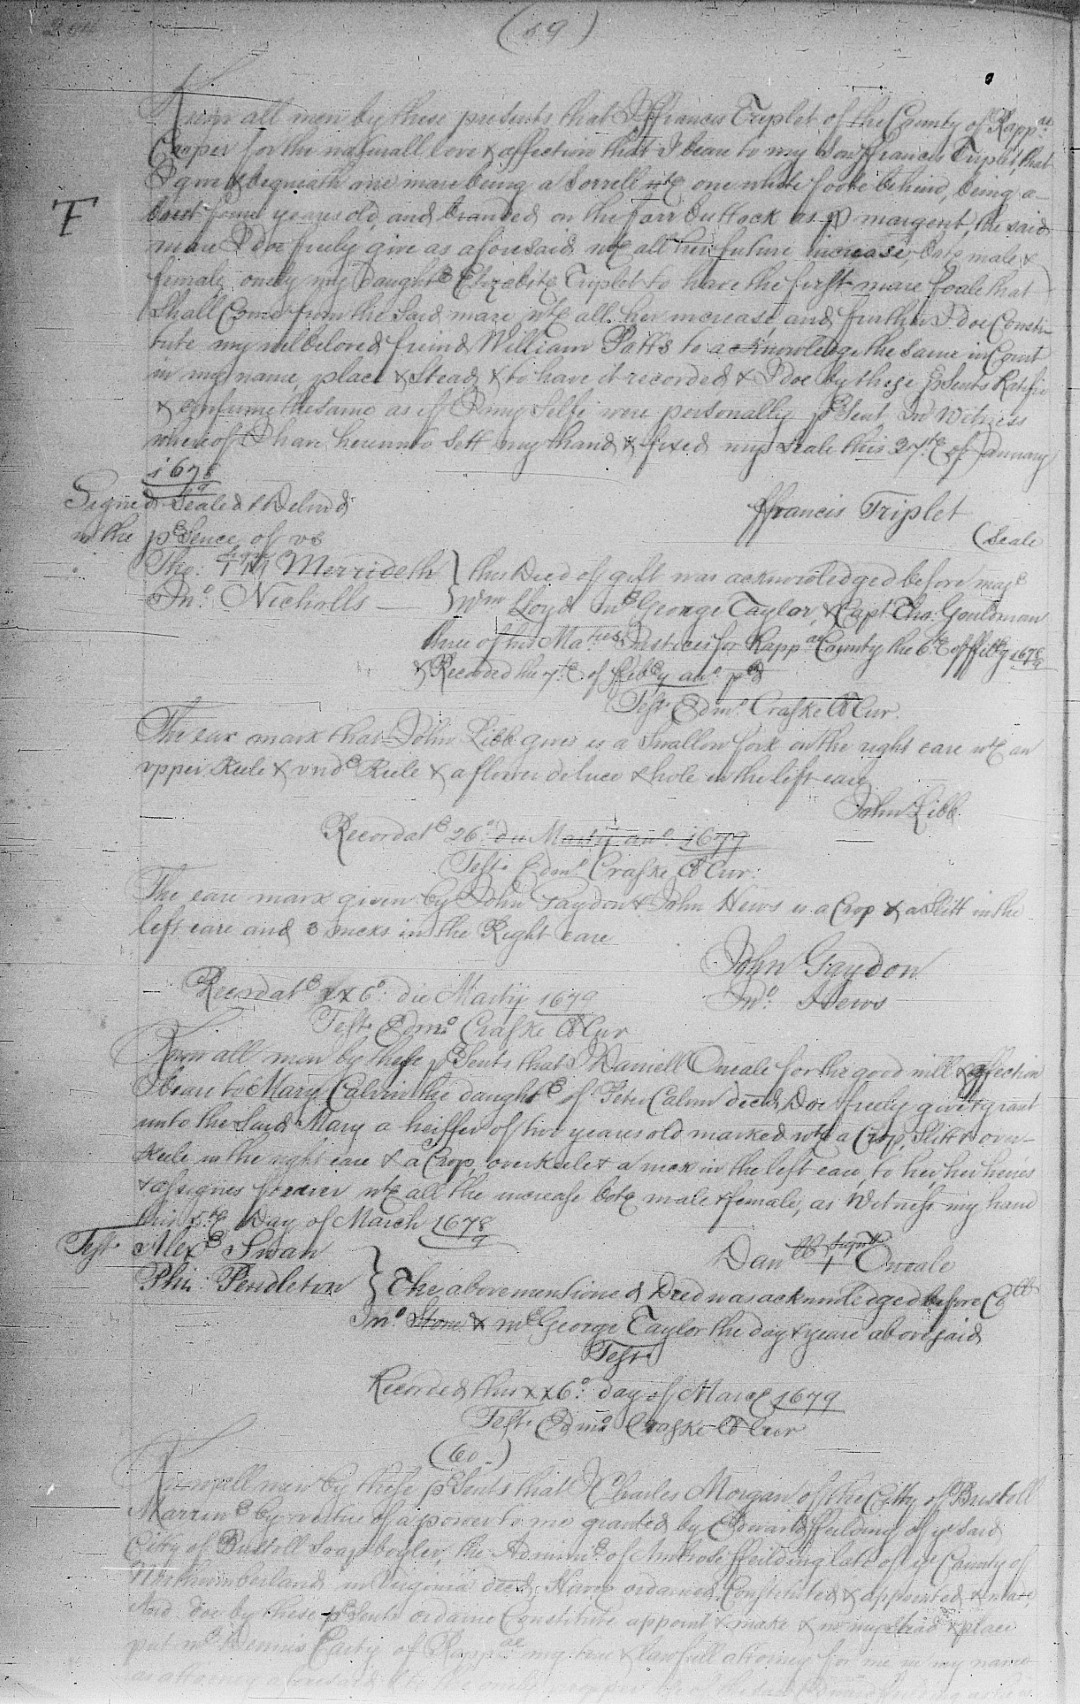 (59)
Know all men by these presents that I ffrancis Triplet of the County of Rappae
Cooper for the naturall love & affection that I beare to my Son ffrancis Triplet, that
I give & bequeath one mare being a Sorrell wth one white foote behind, being a-
bout foure yeares old, and branded on the farr buttock as p margent, the said
F
mare I doe freely give as aforesaid wth all her future increase both male &
female, onely my Daughtr Elizabeth Triplet to have the first mare foale that
Shall Come from the Said mare wth all her increase, and further I doe Consti-
tute my welbeloved freind William Patts to acknowledge the Same in Court
in my name, place & Stead, & to have it recorded & I doe by these psents Ratifie
& confirme the same as if I my Selfe were personally psent In Witness
whereof I have hereunto Sett my hand & fixed my Seale this 27th of January
1678/9
Signed Sealed & Delivd
in the psence of vs
ffrancis Triplet
(Seale
Tho: TM Merrideth
Jno Nicholls
this Deed of gift was acknowledged before majr
Wm Lloyd mr George Taylor, & Capt Tho: Gouldman
three of his Maties Justices for Rappae County the 6th of ffebr 1678/9
& Recorded the 7th of ffebry ano pd
Test Edmo Craske Cl Cur.
The eare mark that John Libb gives is a Swallow fork on the right eare wth an
vpper Keele & vndr Keele & a flower deluce & hole in the left eare
John Libb.
Recordatr 26o die Martij ano 1679
Test Edmo Craske Cl Cur:
The eare mark given by John Gaydon & John Hews is a Crop & a Slitt in the
left eare and 3 nicks in the Right eare
John Graydon
Jno Hews
Recordatr xx6o die Martij 1679
Test Edmo Craske Cl Cur
Know all men by these psents that I Daniell Oneale for the good will & affection
I beare to Mary Calvin the daughtr of Peter Calvin decd, Doe freely give & grant
unto the Said Mary a heiffer of two yeares old marked wth a Crop, Slitt & over-
Keele in the right eare & a Crop, overkeele & a nick in the left eare, to her, her heires
& assignes forever wth all the increase both male & female, as Witness my hand
this 5th Day of March 1678/9
Test Alexr Swan
Phi: Pendleton
Dan signe Oneale
The abovementioned Deed was acknowledged before Coll
Jno Stone & mr George Taylor the day & yeare abovesaid
Test
Recorded this xx6o day of March 1679
Test Edmo Craske Cl Cur
(60)
Know all men by these psents that I Charles Morgan of the Citty of Bristoll
Marrinr by vertue of a power to me granted by Edward ffeilding of ye Said
Citty of Bristoll Soapboyler, the Adminr of Ambrose ffeilding late of ye County of
Northumberland in Virginia decd, Have ordained, Constituted & appointed & made
And doe by these psents ordaine Constitute appoint & make & in my Stead & place
put mr Dennis Carty of Rappae my true & lawfull attorney for me in my name